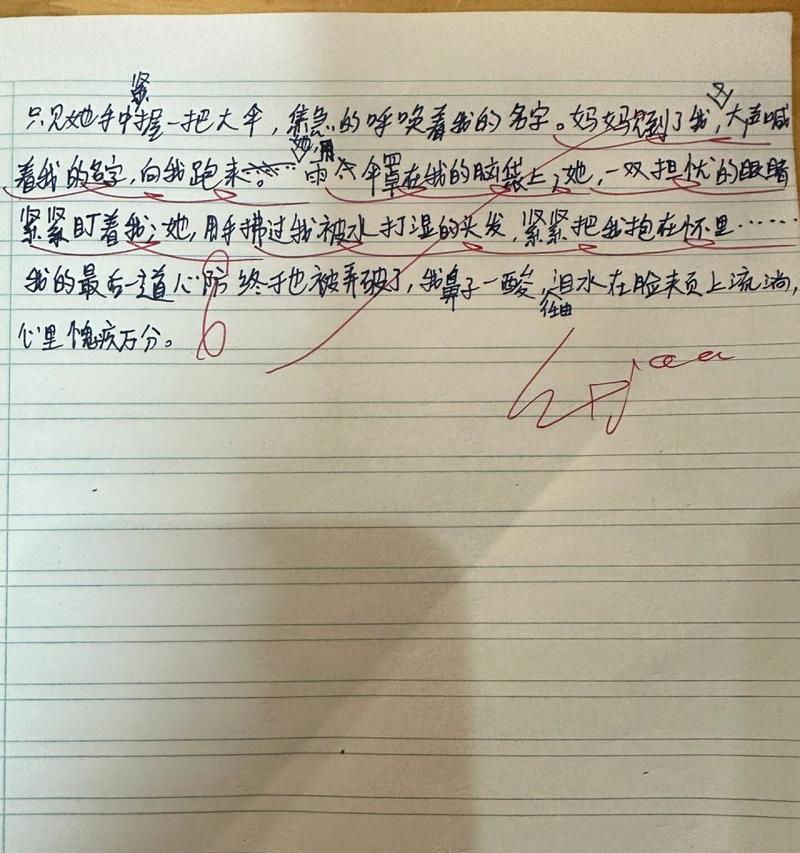 只见她手中紧握一把大伞，焦急的呼唤着我的名字。妈妈见到了我，大声喊
着我的名字，向我跑来。她，用雨伞罩在我的脑袋上；她，一双担忧的眼睛
紧紧盯着我；她，用手拂过我被水打湿的头发，紧紧把我抱在怀里……
我的最后一道心防终于也被弄破了，我鼻子一酸，任由泪水在脸夹页上流淌，
心里愧疚万分。